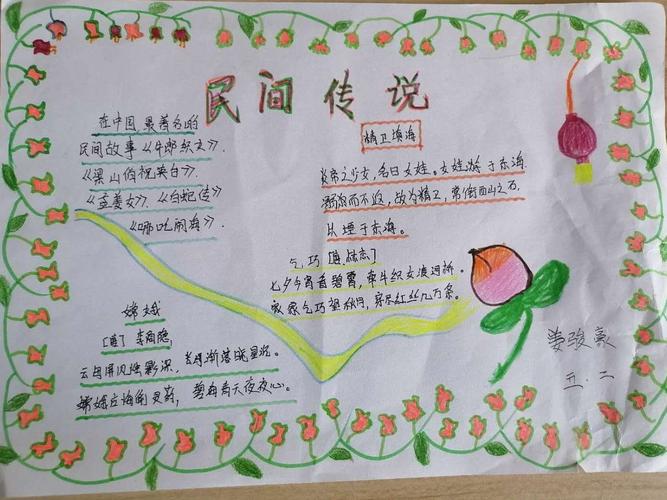 民间传说
在中国最著名的
民间故事《牛郎织女》.
《梁山伯祝英台》
《孟姜女》.《白蛇传》
《哪吒闹海》.
精卫填海
炎帝之少女,名曰女娃,女娃游于东海
溺而不返,故为精卫,常衔西山之石
以堙于东海。
乞巧[唐林杰]
七夕今宵看碧霄,牵牛织女渡河桥。
家家乞巧望秋月,穿尽红丝几万条。
嫦娥
[唐]李商隐
云母屏风烛影深,长河渐落晓星沉。
嫦娥应悔偷灵药,碧海青天夜夜心。
姜骏豪
五.二